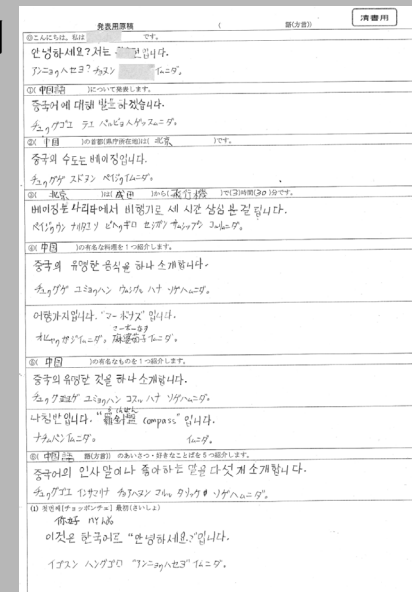 清書用
発表用原稿 ( 語(方言))
◎こんにちは。私は です。
안녕하세요? 저는 입니다.
アンニョハセヨ? チョヌン イムニダ。
①(中国語)について発表します。
중국어에 대해 발표하겠습니다.
チュウグゴエ テエ パルピョハゲッスムニダ。
②(中国)の首都(県庁所在地)は(北京)です。
중국의 수도는 베이징입니다.
チュウグゲ スドヌン ペイジンイムニダ。
③(北京)は(成田)から(飛行機)で(3)時間(30)分です。
베이징은 나리타에서 비행기로 세 시간 삼십 분 걸립니다.
ペイジンウン ナリタエソ ピヘンギロ セシガン サムシップン コルリムニダ。
④(中国)の有名な料理を1つ紹介します。
중국의 유명한 음식을 하나 소개합니다.
チュウグゲ ユミョンハン ウムシグル ハナ ソゲハムニダ。
어향가지입니다. "マーボナス" 입니다.
オヒャンガジイムニダ。 麻婆茄子イムニダ。
⑤(中国)の有名なものを1つ紹介します。
중국의 유명한 것을 하나 소개합니다.
チュウグゲ ユミョンハン コスル ハナ ソゲハムニダ。
나침반입니다. "羅針盤 compass" 입니다.
ナチムバンイムニダ。 イムニダ。
⑥(中国語 語(方言))のあいさつ・好きなことばを5つ紹介します。
중국어의 인사말이나 좋아하는 말을 다섯 개 소개합니다.
チュウグゴエ インサマリナ チョアハヌン マルル タソッケ ソゲハムニダ。
(1) 첫번째[チョッポンチェ] 最初(さいしょ)
你好
이것은 한국어로 "안녕하세요?"입니다.
イゴスン ハングゴロ "アンニョンハセヨ" イムニダ。